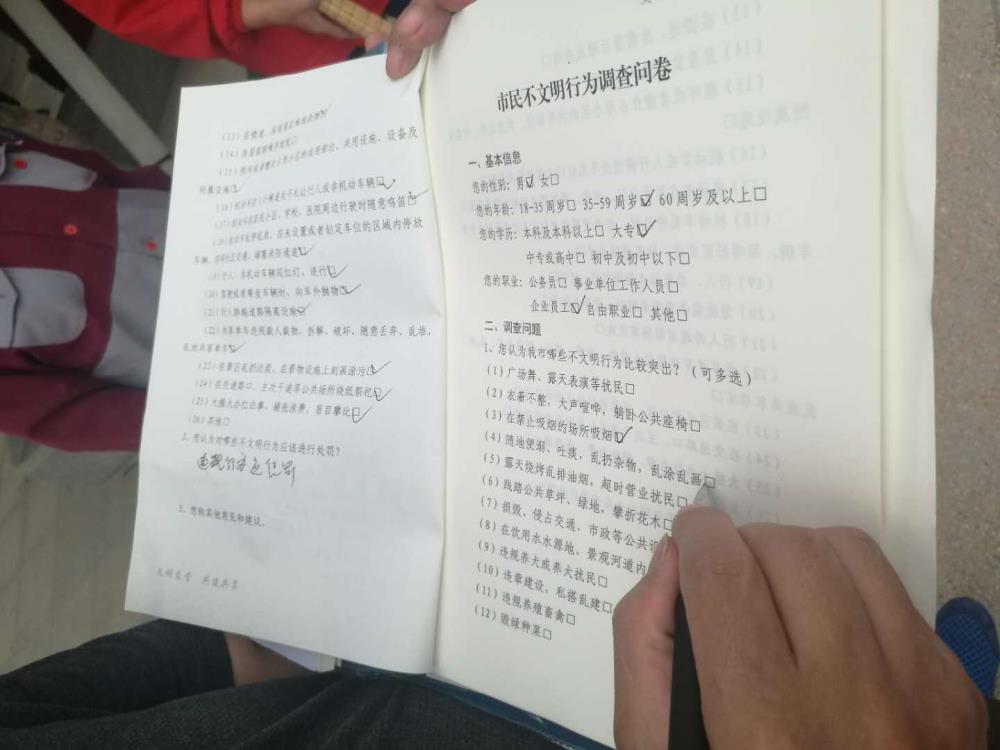 市民不文明行为调查问卷
一、基本信息
您的性别：男☑ 女□
您的年龄：18-35周岁□ 35-59周岁☑ 60周岁及以上□
您的学历：本科及本科以上□ 大专☑
中专或高中□ 初中及初中以下□
您的职业：公务员□ 事业单位工作人员□
企业员工☑ 自由职业□ 其他□
二、调查问题
1、您认为我市哪些不文明行为比较突出？（可多选）
（1）广场舞、露天表演等扰民□
（2）衣着不整，大声喧哗，躺卧公共座椅□
（3）在禁止吸烟的场所吸烟☑
（4）随地便溺、吐痰，乱扔杂物，乱涂乱画□
（5）露天烧烤乱排油烟，超时营业扰民□
（6）践踏公共草坪、绿地，攀折花木□
（7）损毁、侵占交通、市政等公共设
（8）在饮用水水源地、景观河道内
（9）违规养犬或养犬扰民□
（10）违章建设，私搭乱建□
（11）违规养殖畜禽□
（12）毁绿种菜□
（14）
（15）共用部位、共用设施、设备及
附属设施☑
（16）机动车行经人行横道处不礼让行人或非机动车辆☑
（17）学校、医院周边行驶时随意鸣笛☑
（18）在未设置或者划定车位的区域内停放
车辆，堵塞消防通道☑
（19）行人、非机动车辆闯红灯、逆行☑
（20）驾驶或者乘坐车辆时，向车外抛物☑
（21）行人跨越道路隔离设施☑
（22）共享单车违规载人载物，拆解、破坏、随意丢弃、乱堆、
乱放共享单车☑
（23）在景区乱扔垃圾，在景物设施上刻画涂污☑
（24）在交通路口、主次干道等公共场所烧纸祭祀☑
（25）大操大办红白事，铺张浪费，盲目攀比☑
（26）其他□
2、您认为对哪些不文明行为应该进行处罚？
3、您的其他意见和建议。
共建共享